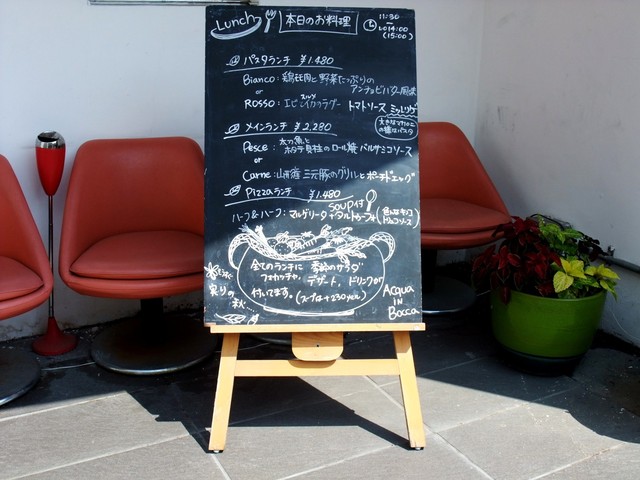 Lunch 本日のお料理 11:30
LO14:00
(15:00)
パスタランチ ¥1.480
Bianco: 鶏モモ肉と野菜たっぷりの
アンチョビバター風味
or
Rosso: エビとイカのラグー トマトソース
大きなマカロニ
の様なパスタ
メインランチ ¥2,280
Pesce: 太刀魚と
ホタテ貝柱のロール焼 バルサミコソース
or
Carne: 山形産 三元豚のグリルとポーチドエッグ
Pizzaランチ ¥1.480
SOUP付
ハーフ&ハーフ: マルゲリータ + タルトゥーフォ (色んなキノコ
トリュフソース)
全てのランチに 季節のサラダ
フォカッチャ、デザート、ドリンクが
付いてます。(スープは+230yen)
実りの
秋...
Acqua
IN
Bocca